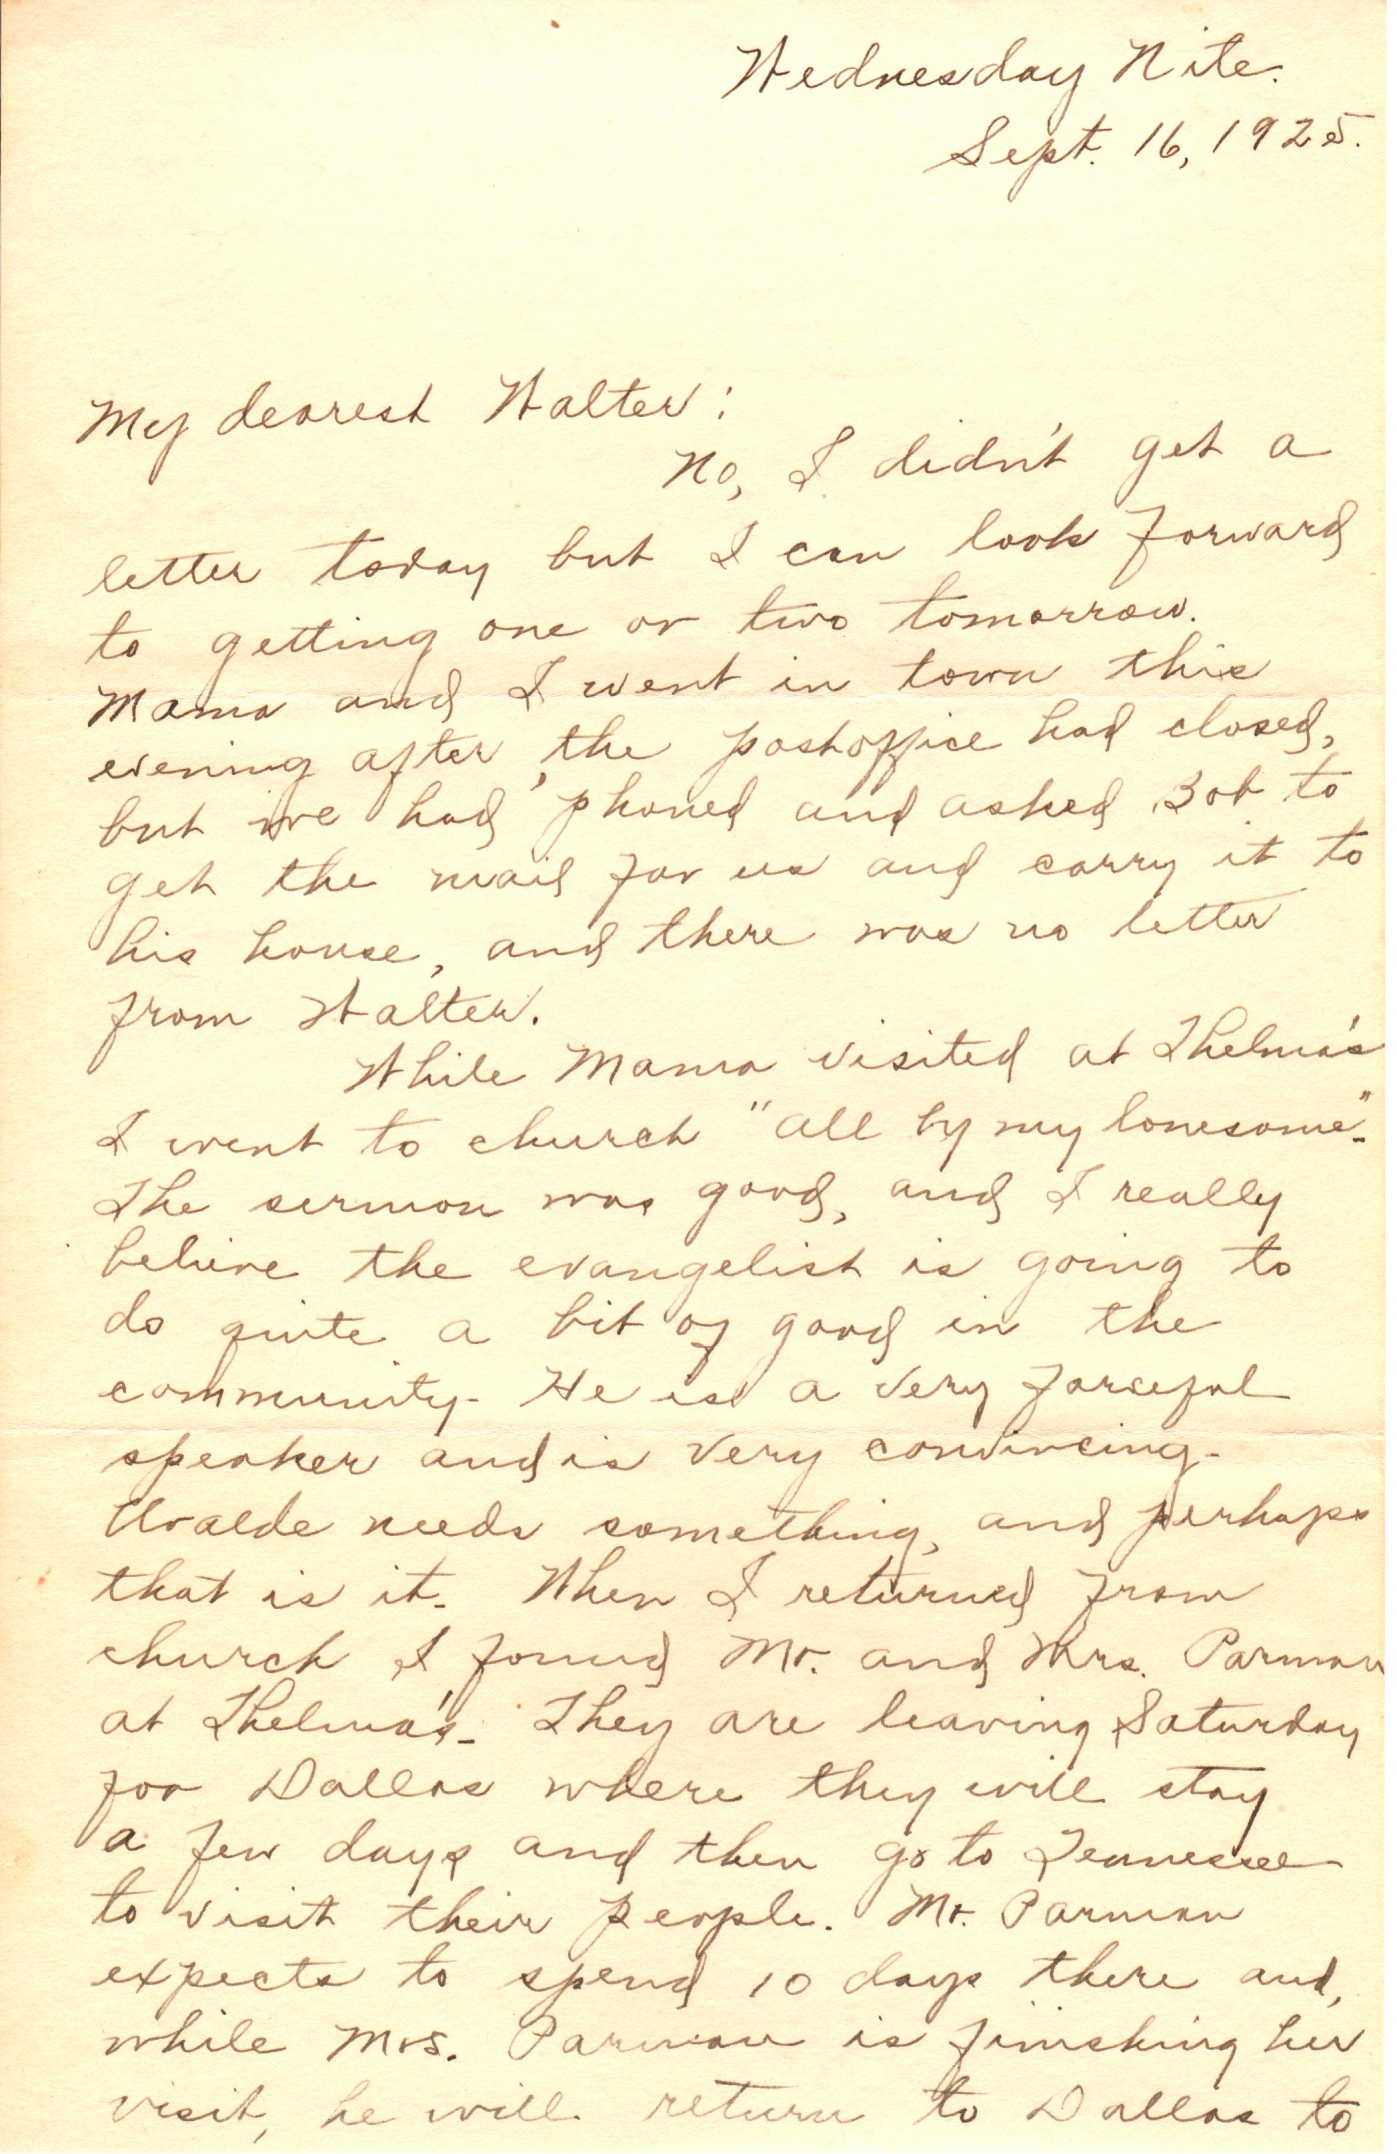 Wednesday Nite.
Sept. 16, 1925.
My dearest Walter:
No, I didn't get a
letter today but I can look forward
to getting one or two tomorrow.
Mama and I went in town this
evening after the postoffice had closed,
but we had 'phoned and asked Bob to
get the mail for us and carry it to
his house, and there was no letter
from Walter.
While Mama visited at Thelma's
I went to church "all by my lonesome".
The sermon was good, and I really
believe the evangelist is going to
do quite a bit of good in the
community. He is a very forceful
speaker and is very convincing.
Uvalde needs something, and perhaps
that is it. When I returned from
church I found Mr. and Mrs. Parman
at Thelma's. They are leaving Saturday
for Dallas where they will stay
a few days and then go to Tennessee
to visit their people. Mr. Parman
expects to spend 10 days there and,
while Mrs. Parman is finishing her
visit, he will return to Dallas to